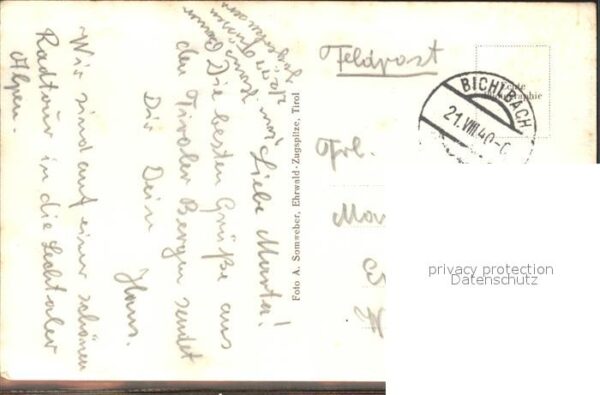 Feldpost
Echte
Photographie
BICHLBACH
21.VIII.40-
Frl.
Mar
Foto A. Somweber, Ehrwald-Zugspitze, Tirol
Liebe Martha!
Die besten Grüße aus
den Tiroler Bergen sendet
Dir Dein
Hans.
Wir sind auf einer schönen
Radtour in die Lechtaler
Alpen.
privacy protection
Datenschutz